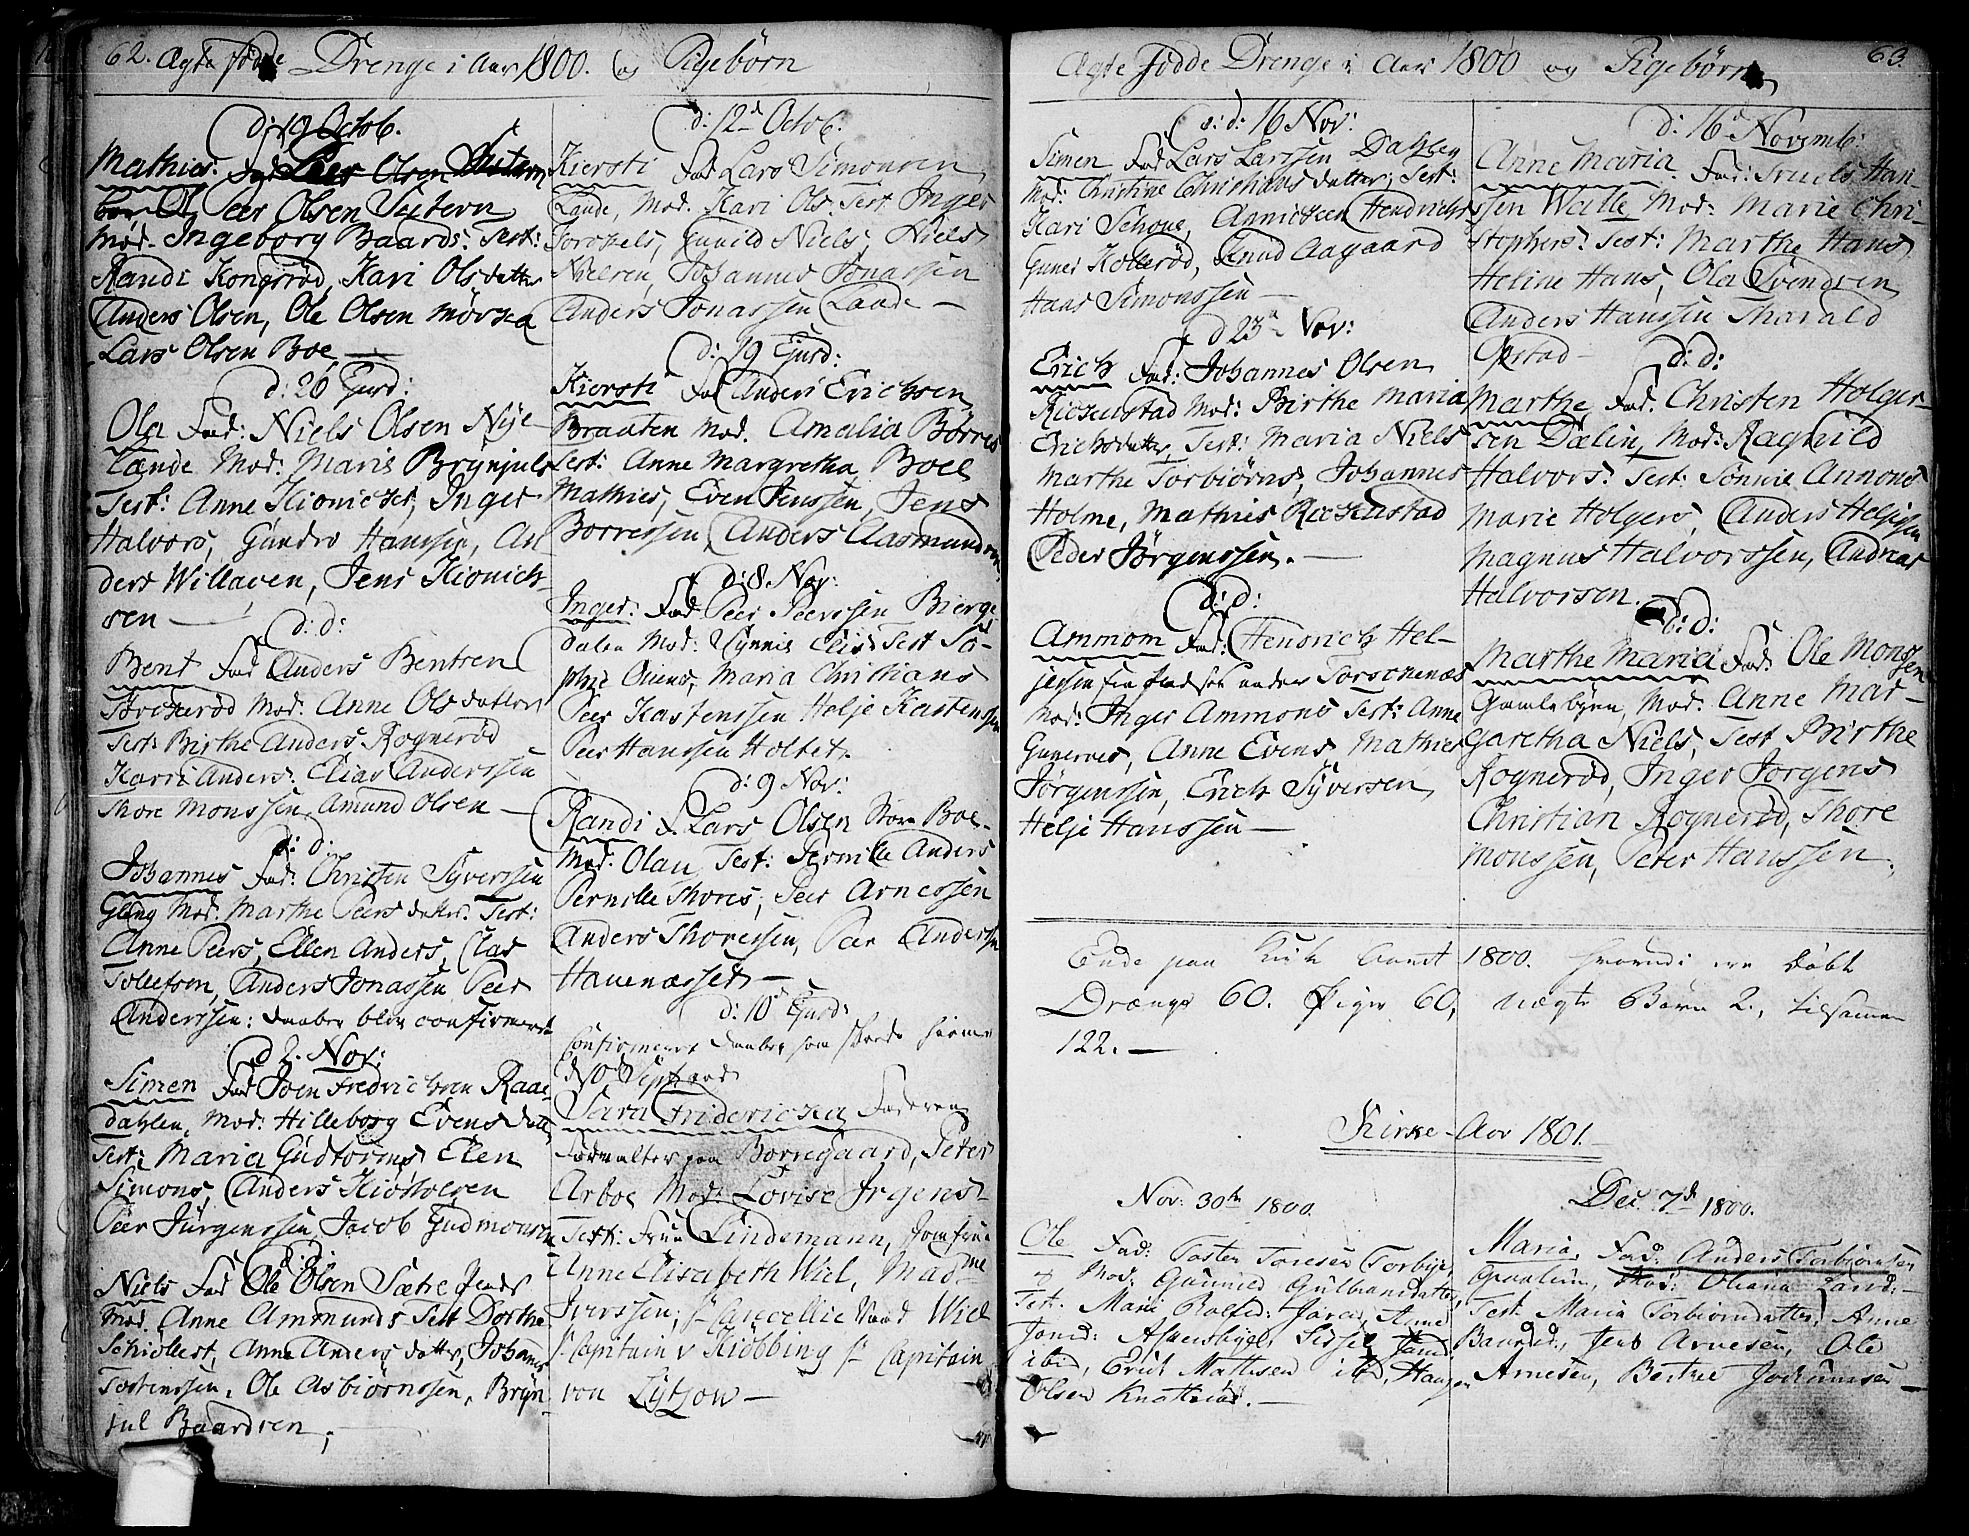 62. Ægte fødde Drenge i Aar 1800. og Pigebørn
d: 19 Octob.
Mathies: Fad Peer Olsen
Peer Olsen Sextern
Mod. Ingeborg Baards: Test:
Randi Kongsrød, Kari Olsdatter
Anders Olsen, Ole Olsen
Lars Olsen Boe,
d: 26 Ejusd:
Ola Fad: Niels Olsen Nye-
lænde Mod: Maris Brynjuls
Test: Anne Inger
Halvors, Gunder Hanssen, An
ders Jens
sen —
d: d:
Bent Fad Anders Bentsen
Mod. Anne Olsdatter
Test: Birthe Anders Rognerød
Karri Anders: Elias Anderssen
Thore Monssen, Amund Olsen —
d: d.
Johannes Fad: Christen Syverssen
Gleng Mod. Marthe Peersdatter. Test:
Anne Peers, Ellen Anders, Clas
Tollefsen, Anders Jonassen Peer
Anderssen: Daaben blev confirmeret
d 2. Nov:
Simen Fad Joen Fredrichsen Raae-
dahlen, Mod: Hilleborg Evensdatt
Test: Maria Gudtorms Elen
Simons, Anders
Peer Jürgenssen, Jacob Gudmonsen
d: d:
Niels Fad Ole Olsen Sætre
Mod. Anne Ammunds Test Dorthe
Anne Andersdatter, Johannes
Tostenssen, Ole Asbiørnssen, Bryn
jul Baardsen,
d: 12d Octob.
Kiersti Fad Lars Simonsen
Lande, Mod. Kari Ols. Test. Inger
Torchels, Gunild Niels, Niels
Nielsen, Johannes Jonassen
Anders Jonassen Lande —
d: 19 Ejusd:
Kiersti Fad Anders Erichsen
Braaten Mod. Amalia Børres
Test: Anne Margretha Boel
Mathies, Even Jenssen, Jens
Borressen, Anders Aasmundsen
d: 8. Nov:
Inger: Fad Peer Peerssen Bierge
dalen Mod: Elias Test So-
phie Maria Christians
Peer Kastenssen Helje Kastenssen
Peer Hanssen Holtet.
d: 9 Nov:
Randi F. Lars Olsen Store Boe.
Mod. Olau, Test: Pernille Anders
Pernille Thores, Peer Arnessen
Anders Thoressen, Peer Anderssen
Hauenæsset —
d: 10d Ejusd:
Confirmeret Daaben som skeede hiemme
Sara Friderica Faderen
Forvalter paa Borregaard, Peter
Arboe Mod: Lovise Irgens
Test: Frue Lindemann, Jomfrue
Anne Elisabeth Wiel, Madme
Iverssen, Hr Cancellie Raad Wiel
Hr Capitain v Kiøbbing Hr Capitain
von Lützow —
Ægte Fødde Drenge i Aar 1800 og Pigebørn 63.
d: 16 Nov:
Simen Fad Lars Larssen Dahleg
Mod: Christine Christians datter, Test:
Kari Schoue, Annichen Hendrichs
Guner Kollerød, Knud Aagaard
Hans Simonssen —
d 23d Nov:
Erich Fad: Johannes Olsen
Richenstad Mod: Birthe Maria
Erichsdatter, Test: Maria Niels
Marthe Torbiørns, Johannes
Holme, Mathies Richenstad
Peder Jörgenssen. —
d: d:
Ammom Fad: Hendrich Hel-
jessen
Mod: Inger Ammons Test: Anne
Guneres, Anne Evens, Mathies
Jørgenssen, Erich Syversen,
Helje Hanssen —
d: 16d Novemb.
Anne Maria Fad: Truels Han-
ssen Walle Mod: Marie Chri-
stophers: Test: Marthe Hans
Heline Hans, Ola Svendsen
Anders Hanssen Tharald
Opstad — d: d:
Marthe Fad. Christen Holger-
sen Dælin, Mod: Raghild
Halvors: Test: Annons
Marie Holgers, Anders Heljessen
Magnus Halvorssen, Andreas
Halvorsen. d: d:
Marthe Maria Fad: Ole Monssen
Gamlebyen, Mod: Anne Mar-
garetha Niels, Test Birthe
Rognerød, Inger Jørgens
Christian Rognerød, Thore
Monssen, Peter Hanssen
Ende paa Kirke Aaret 1800. hvorudi ere døbt
Drænge 60. Piger 60, uægte Børn 2., tilsamen
122. —
Kirke-Aar 1801.
Nov: 30th 1800.
Ole Fad: Tosten Toresen Torbye,
Mod: Gunnild Gulbransdatter,
Test. Anne
Sidsel
ibid, Erich Mathisen ibid, Hans
Olsen Knatterud. —
Dec. 7d 1800.
Maria, Fad: Anders Torbiørnsen
Opsalem, Mod: Oleana
Test. Maria Torbiornsdatter, Anne
Jens Arnesen, Ole
Arnesen,